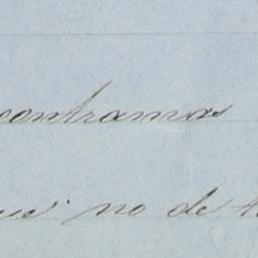 contramos
que no de